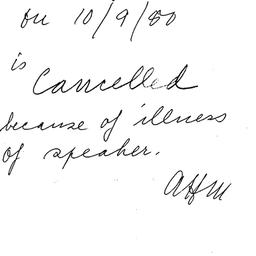 on 10/9/80
is
Cancelled
because of illness
of speaker.
AHM